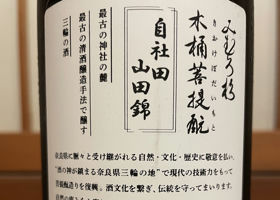 みむろ杉
木桶菩提酛
きおけぼだいもと
自社田
山田錦
最古の神社の麓
最古の清酒醸造手法で醸す
三輪の酒
奈良県に脈々と受け継がれる自然・文化・歴史に敬意を払い、
“酒の神が鎮まる奈良県三輪の地”で現代の技術力をもって
菩提酛造りを復興。酒文化を繋ぎ、伝統を守ってまいります。